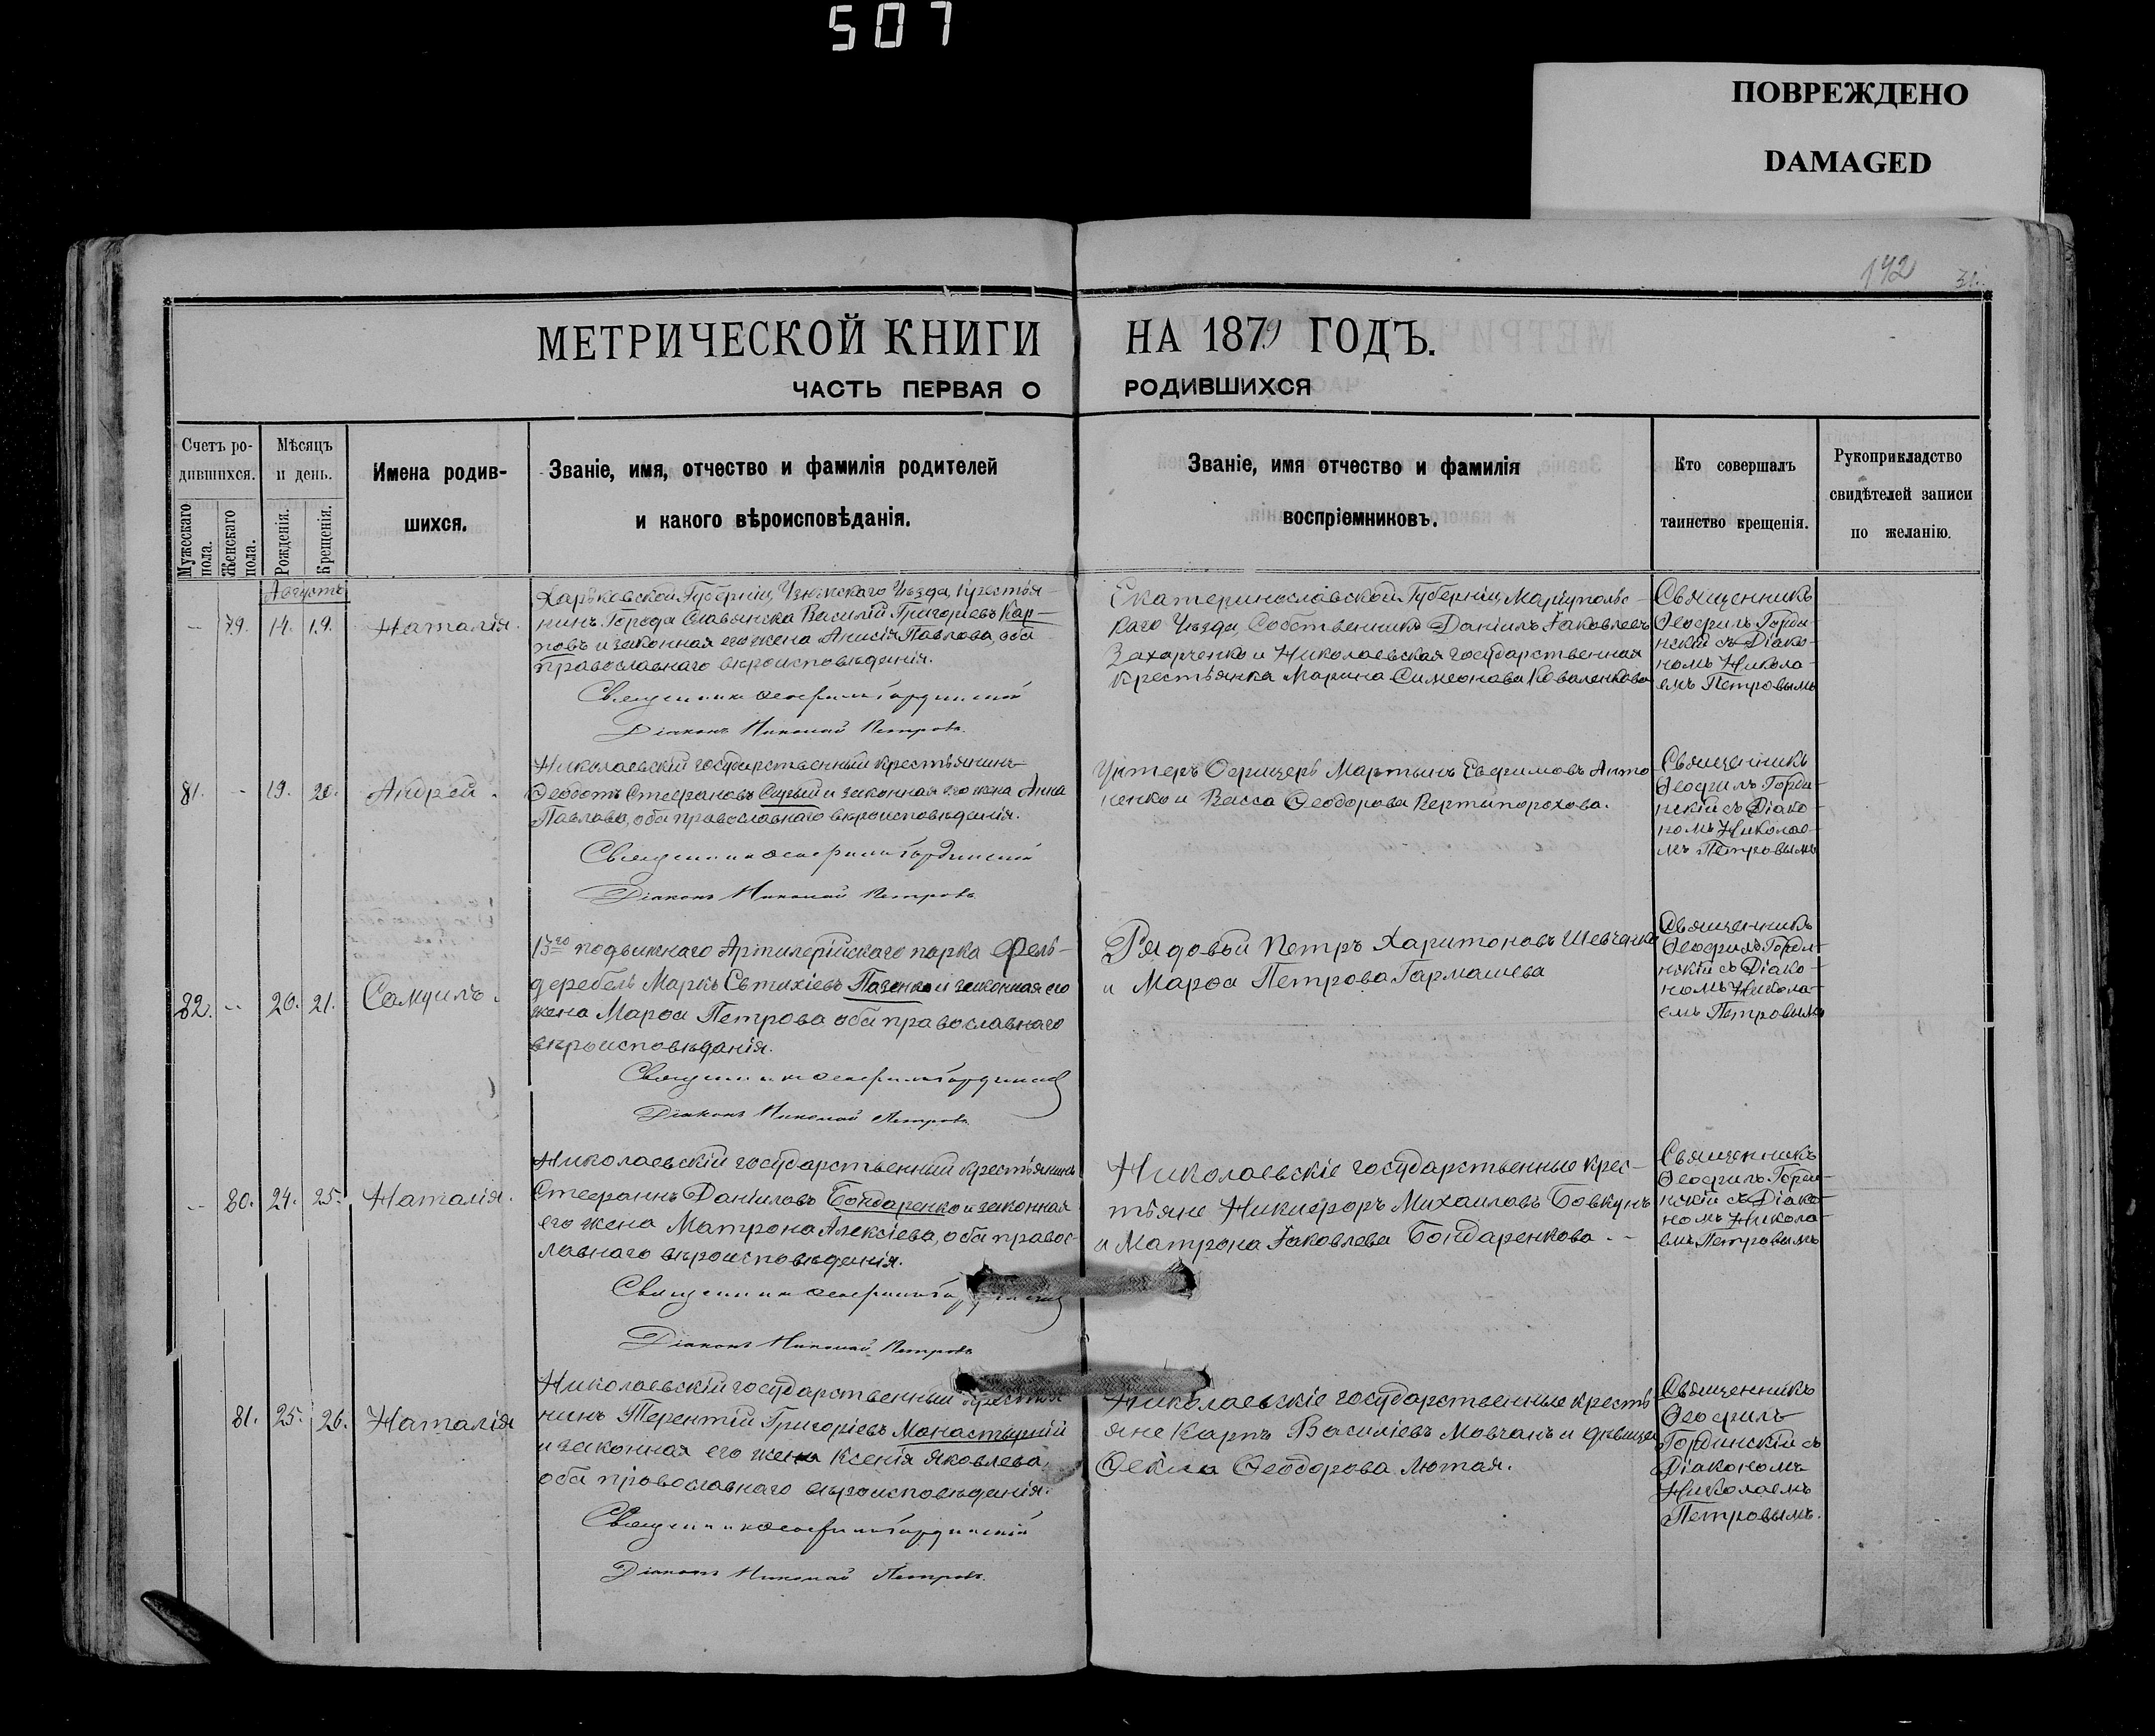 507
ПОВРЕЖДЕНО
DAMAGED
142
31.
МЕТРИЧЕСКОЙ КНИГИ НА 1879 ГОДЪ.
ЧАСТЬ ПЕРВАЯ О РОДИВШИХСЯ
Счетъ ро-
дившихся.
Мужескаго пола.
Женскаго пола.
Мѣсяцъ
и день.
Рожденія.
Крещенія.
Имена родив-
шихся.
Званіе, имя, отчество и фамилія родителей
и какого вѣроисповѣданія.
Званіе, имя отчество и фамилія
воспріемниковъ.
Кто совершалъ
таинство крещенія.
Рукоприкладство
свидѣтелей записи
по желанію.
Августъ
– 79. 14. 19. Наталія.
Харьковской Губерніи, Изюмскаго Уѣзда, крестья-
нинъ Города Славянска Василій Григоріевъ Кар-
повъ и законная его жена Анисія Павлова, оба
православнаго вѣроисповѣданія.
Священникъ Ѳеофилъ Гординскій
Діаконъ Николай Петровъ.
Екатеринославской Губерніи Маріупольс-
каго Уѣзда, Собственникъ Даніилъ Яковлевъ
Захарченко и Николаевская государственная
крестьянка Марина Симеонова Коваленкова
Священникъ
Ѳеофилъ Горди-
нскій съ Діако-
номъ Никола-
емъ Петровымъ
81. – 19. 20. Андрей.
Николаевскій государственный крестьянинъ
Ѳеодотъ Стефановъ и законная его жена Анна
Павлова, оба православнаго вѣроисповѣданія.
Священникъ Ѳеофилъ Гординскій
Діаконъ Николай Петровъ
Унтеръ Офицеръ Мартынъ Евфимовъ Анто
ненко и Васса Ѳеодорова Вертипорохова.
Священникъ
Ѳеофилъ Горди-
нскій съ Діако-
номъ Николае-
мъ Петровымъ
82. – 20. 21. Самуилъ.
13го подвижнаго Артилерійскаго парка Фель-
дфебель Маркъ Евтихіевъ Пазенко и законная его
жена Марѳа Петрова оба православнаго
вѣроисповѣданія.
Священникъ Ѳеофилъ Гординскій
Діаконъ Николай Петровъ
Рядовый Петръ Харитоновъ Шевченко
и Марѳа Петрова Гармашева
Священникъ
Ѳеофилъ Горди-
нскій съ Діако-
номъ Никола-
емъ Петровымъ
– 80. 24. 25. Наталія.
Николаевскій государственный крестьянинъ
Стефанъ Даніиловъ Бондаренко и законная
его жена Матрона Алексіева, оба правос-
лавнаго вѣроисповѣданія.
Священникъ Ѳеофилъ Гординскій
Діаконъ Николай Петровъ
Николаевскіе государственные крес-
тьяне Никифоръ Михаиловъ Бовкунъ
и Матрона Яковлева Бондаренкова. –
Священникъ
Ѳеофилъ Горди-
нскій съ Діако-
номъ Никола-
емъ Петровымъ
81. 25. 26. Наталія
Николаевскій государственный крестья-
нинъ Терентій Григоріевъ Монастырній
и законная его жена Ксенія Яковлева,
оба православнаго вѣроисповѣданія.
Священникъ Ѳеофилъ Гординскій
Діаконъ Николай Петровъ.
Николаевскіе государственные кресть
яне Карпъ Василіевъ Мовчанъ и дѣвица
Ѳекла Ѳеодорова Лютая.
Священникъ
Ѳеофилъ
Гординскій съ
Діакономъ
Николаемъ
Петровымъ.